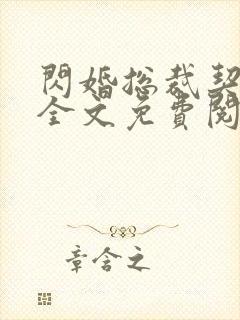 閃婚總裁契
全文免費閱
章含之